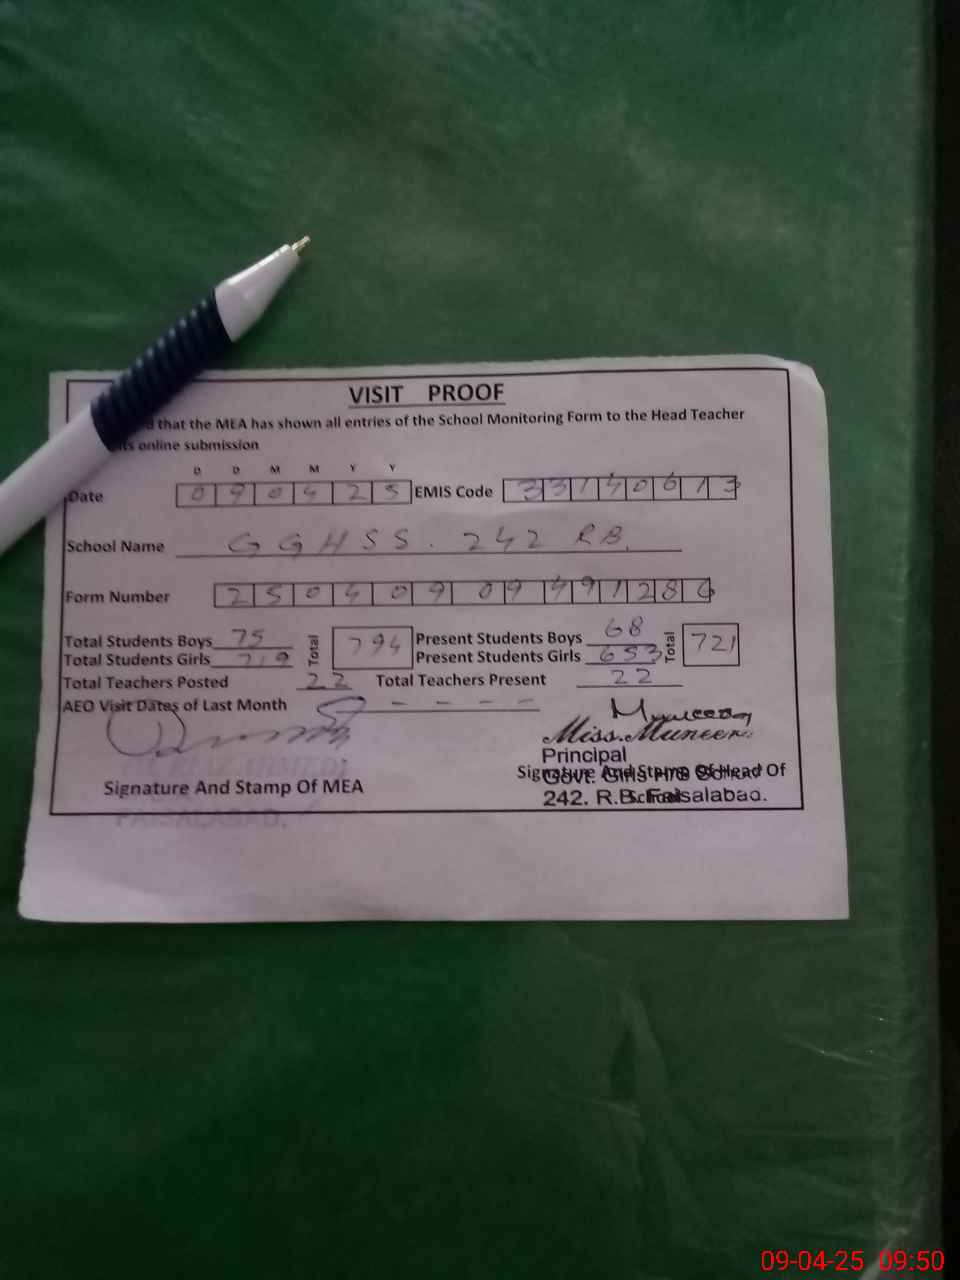 VISIT PROOF
that the MEA has shown all entries of the School Monitoring Form to the Head Teacher
online submission
D D M M Y Y
Date 0 9 0 4 2 5 EMIS Code 3 3 1 4 0 6 1 3
School Name GGHSS. 242 RB.
Form Number 2 5 0 4 0 9 0 9 4 9 1 2 8 6
Total Students Boys 75 Total 794 Present Students Boys 68 Total 721
Total Students Girls 719 Present Students Girls 653
Total Teachers Posted 22 Total Teachers Present 22
AEO Visit Dates of Last Month - - - -
Miss. Muneer
Principal
Signature And Stamp Of Head Of School
Govt. Girls H/S School
242. R.B. Faisalabad.
Signature And Stamp Of MEA
FAISALABAD.
09-04-25 09:50